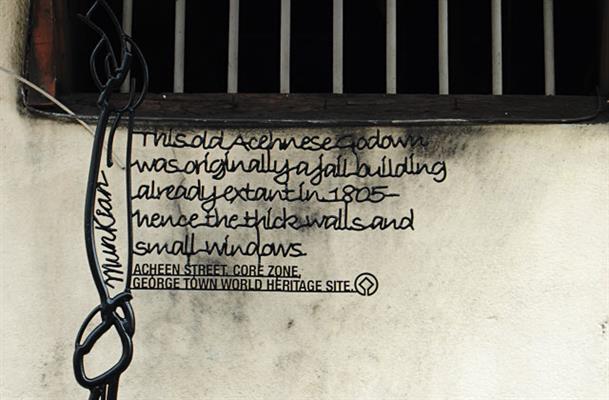 This old Acehnese Godown
was originally a jail building
already extant in 1805-
hence the thick walls and
small windows.
ACHEEN STREET, CORE ZONE,
GEORGE TOWN WORLD HERITAGE SITE.
Munkian